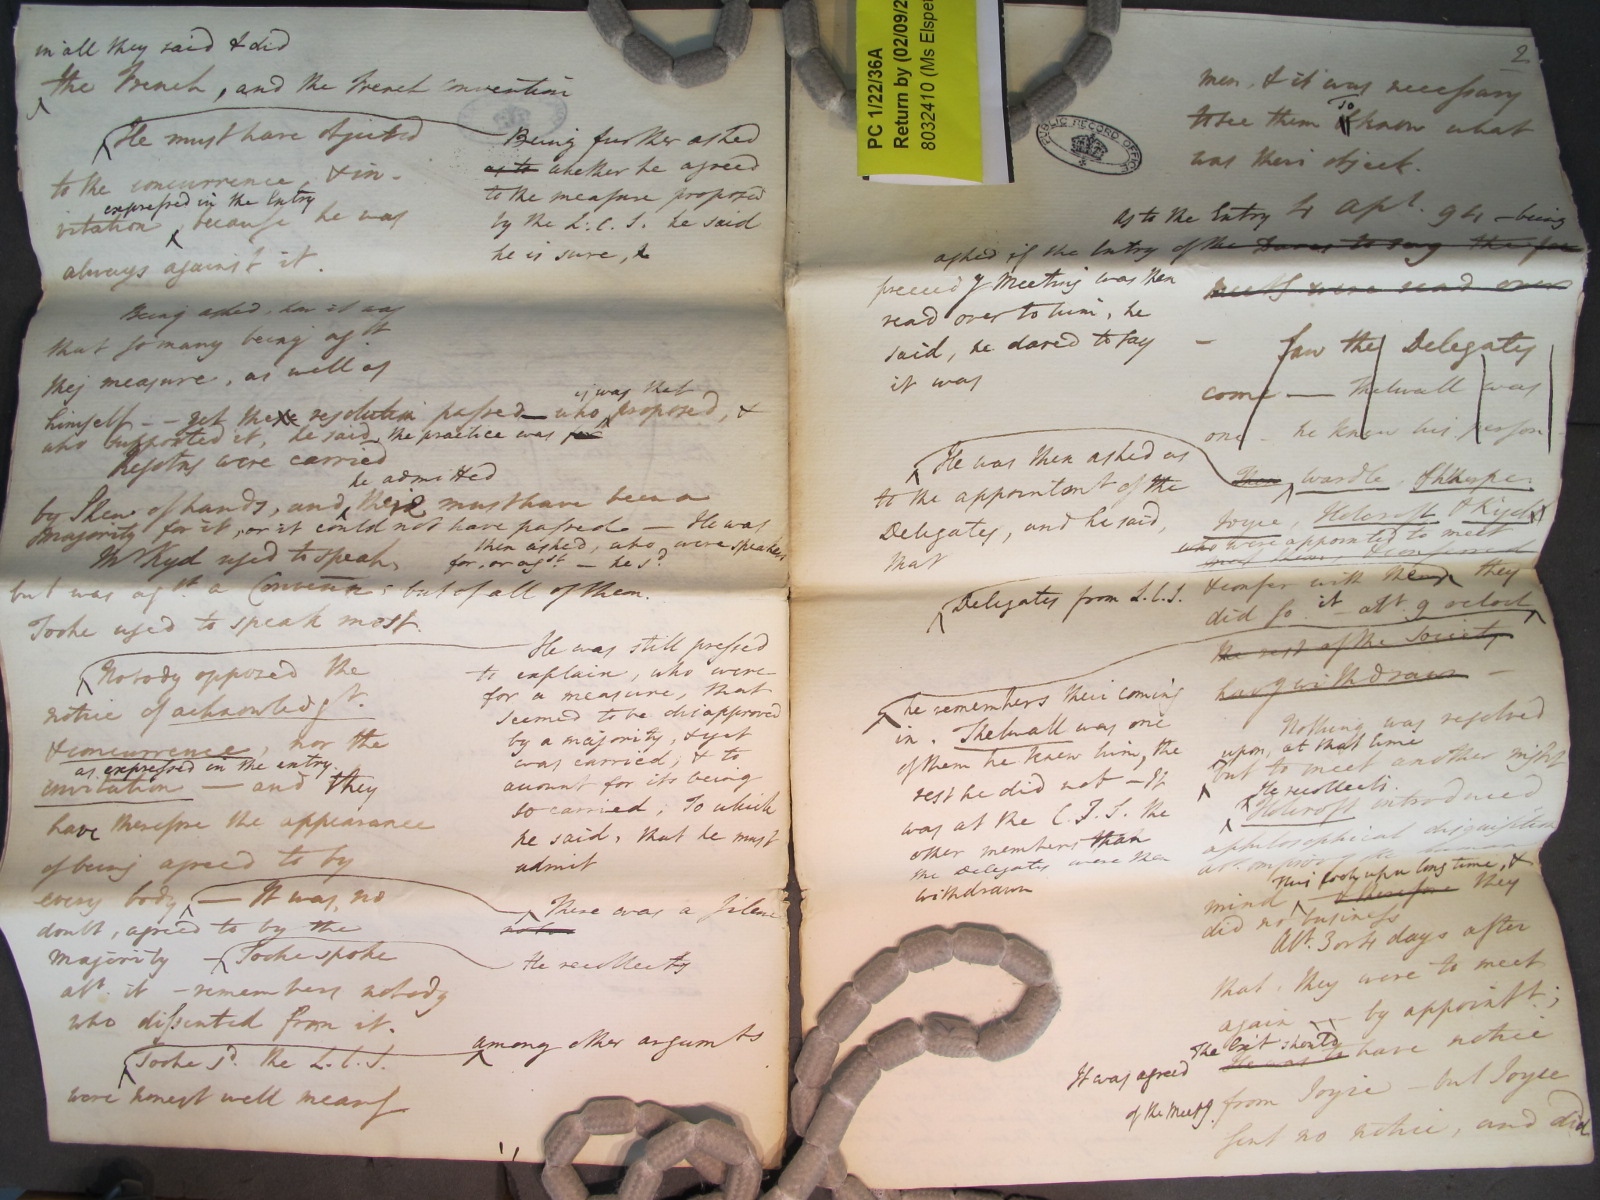 in all they said & did
the French, and the French convention
He must have objected
to the concurrence, & in-
expressed in the Entry
vitation, because he was
always against it.
Being further asked
as to whether he agreed
to the measure proposed
by the L.C.S. he said
he is sure, &
Being asked, how it was
that so many being agst
this measure, as well as
is was that
himself -- yet the resolution passed - who proposed, &
who supported it, he said, the practice was for
Resolns were carried
he admitted
by Shew of hands, and there must have been a
majority for it, or it could not have passed - He was
then asked, who were speakers
Mr Kyd used to speak,
for, or agst - he sd
but was agst a Convention: but of all of them.
Tooke used to speak most.
Nobody opposed the
notice of acknowledgt.
& concurrence, nor the
as expressed in the entry
invitation - and they
have therefore the appearance
of being agreed to by
every body - It was, no
doubt, agreed to by the
majority - Tooke spoke
abt. it - remembers nobody
who dissented from it.
Tooke sd. the L.C.S.
were honest well meang
He was still pressed
to explain, who were
for a measure, that
seemed to be disapproved
by a majority, & yet
was carried; & to
account for its being
so carried; To which
he said, that he must
admit
There was a Silence
He recollects
among other argumts
PC 1/22/36A
Return by (02/09/2
8032410 (Ms Elspe
PUBLIC RECORD OFFICE
2
men, & it was necessary
to see them to know what
was their object.
As to the Entry 4 Apl. 94 - being
asked if the Entry of the
preceedg Meeting was then
read over to him, he
said, he dared to say
it was
meets were read over
- saw the Delegates
come - Thelwall was
one - he knew his person
He was then asked as
to the appointmt of the
Delegates, and he said,
that
Wardle, Sharpe,
Joyce, Holcroft & Kyd
who were appointed to meet
Delegates from L.C.S.
& confer with them, they
did so it abt. 9 oclock
the rest of the Society
havg withdrawn -
he remembers their coming
in. Thelwall was one
of them he knew him, the
rest he did not - It
was at the C.I.S. the
other members than
the Delegates were then
withdrawn
Nothing was resolved
upon, at that time
but to meet another night
He recollects
Holcroft introduced
a philosophical disquisition
This took up a long time, &
mind therefore they
did no business
Abt. 3 or 4 days after
that, they were to meet
again - by appointt;
It was agreed
of the meetg.
he was to have notice
from Joyce - but Joyce
sent no notice, and did